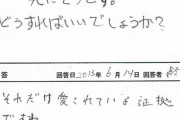 死にそうです。
どうすればいいでしょうか?
答 回答日 2013年6月14日 回答者
それだけ愛されている証拠
ですよね